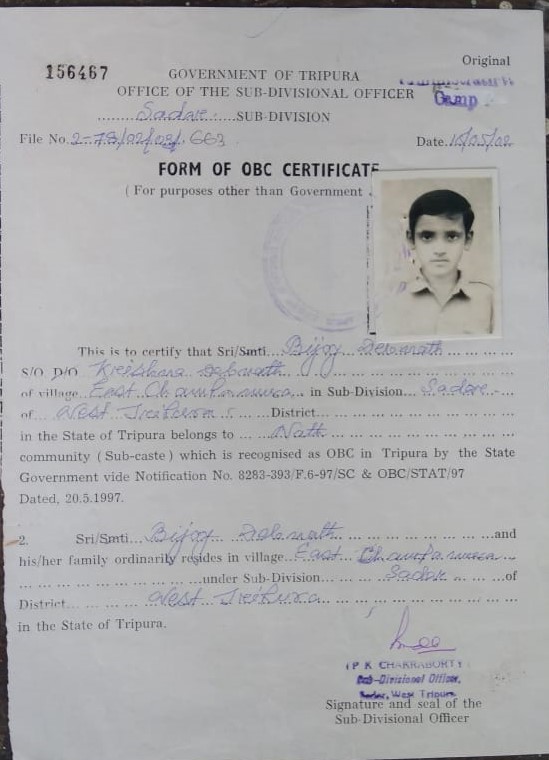 Original
156467
GOVERNMENT OF TRIPURA
OFFICE OF THE SUB-DIVISIONAL OFFICER
Camp
..........Sadar..........SUB-DIVISION
File No. 663
Date. 15/05/02
FORM OF OBC CERTIFICATE
( For purposes other than Government
This is to certify that Sri/Smti... Bijoy Debnath ... ... ... ...
S/O D/O Krishna Debnath ... ... ... ...
of village East Champamura ... in Sub-Division... Sadar ...
of ... West Tripura ... District... ... ... ...
in the State of Tripura belongs to ... Nath ... ... ... ...
community (Sub-caste) which is recognised as OBC in Tripura by the State
Government vide Notification No. 8283-393/F.6-97/SC & OBC/STAT/97
Dated, 20.5.1997.
2. Sri/Smti... Bijoy Debnath ... ... ...and
his/her family ordinarily resides in village... East Champamura...
... ... ... ...under Sub-Division... Sadar ... ...of
District... West Tripura ... ... ... ...
in the State of Tripura.
(P K CHAKRABORTY)
Sub-Divisional Officer,
Sadar, West Tripura
Signature and seal of the
Sub-Divisional Officer